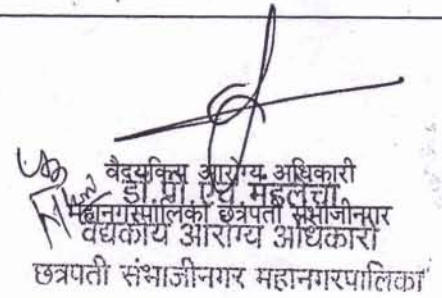 वैद्यकिय आरोग्य अधिकारी
डॉ. पी. एच.
महानगरपालिका छत्रपती संभाजीनगर
वैद्यकीय आरोग्य अधिकारी
छत्रपती संभाजीनगर महानगरपालिका